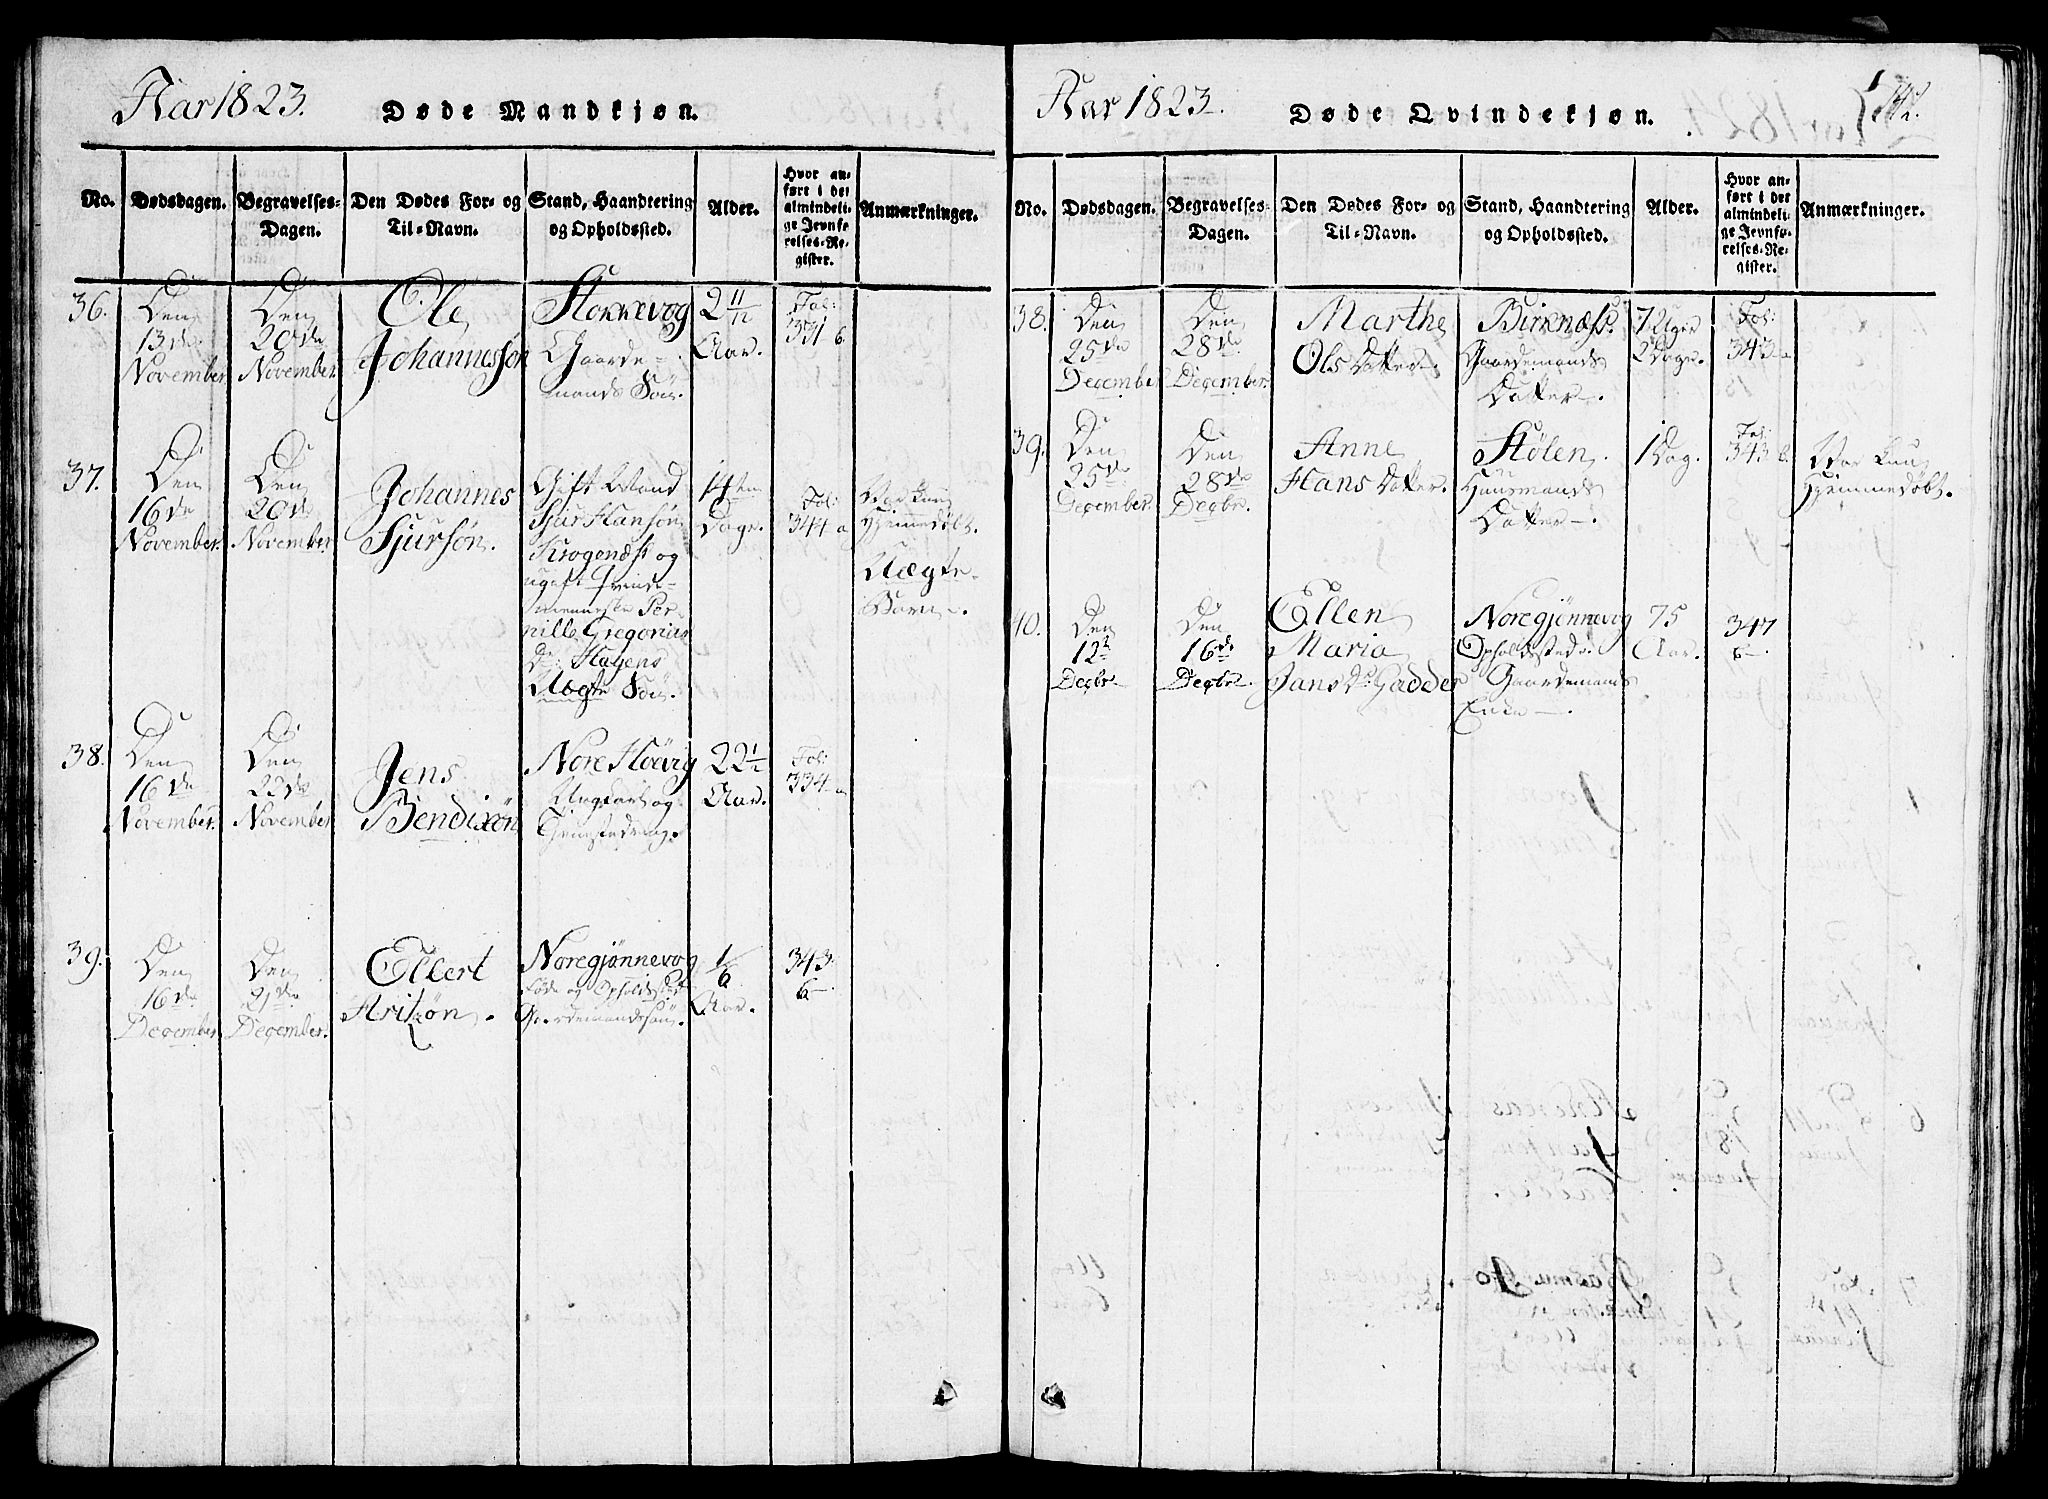 Aar 1823. Døde Mandkjøn.
No. Dødsdagen. Begravelses-Dagen. Den Dødes For- og Til-Navn. Stand, Haandtering og Opholdssted. Alder. Hvor anført i det almindelige Jevnførelses-Register. Anmærkninger.
36. Den 13de November Den 20de November. Ole Johannessøn Stokkevog Gaardemands Søn. 2 11/12 Aar. Fol: 331 b.
37. Den 16de November. Den 20de November Johannes Sjursøn. Gift Mand Sjur Hansøn Krogenæs og ugift Qvindemenneske Pernille Gregorius d: Hagens Uægte Søn. 14ten Dage. Fol: 344 a Var kun Hjemmedøbt. Uægte Barn.
38. Den 16de November. Den 22de November Jens Bendixøn Nore Høevig Ungkarl og 22 1/2 Aar. Fol: 334 a
39. Den 16de December Den 21de December. Ellert Arisøn. Noregjønnevog Føde og Opholdssted Gaardemandssøn. 1/6 Aar. 343. b
Aar 1823. Døde Qvindekjøn. 142.
No. Dødsdagen. Begravelses-Dagen. Den Dødes For- og Til-Navn. Stand, Haandtering og Opholdssted. Alder. Hvor anført i det almindelige Jevnførelses-Register. Anmærkninger.
38. Den 25de December Den 28de December. Marthe Ols Datter. Birknæs. Gaardemands Datter. 7 Uger 2 Dage. Fol: 343 a
39. Den 25de December. Den 28de Decbr. Anne Hans Datter. Stølen. Huusmands Datter. 1 Dag. Fol: 343 b. Var kun Hjemmedøbt.
40. Den 12te Decbr Den 16de Decbr. Ellen Maria Jans D. Gadder Noregjønnevog Opholdssted. Gaardemands Enke. 75 Aar. 347 b